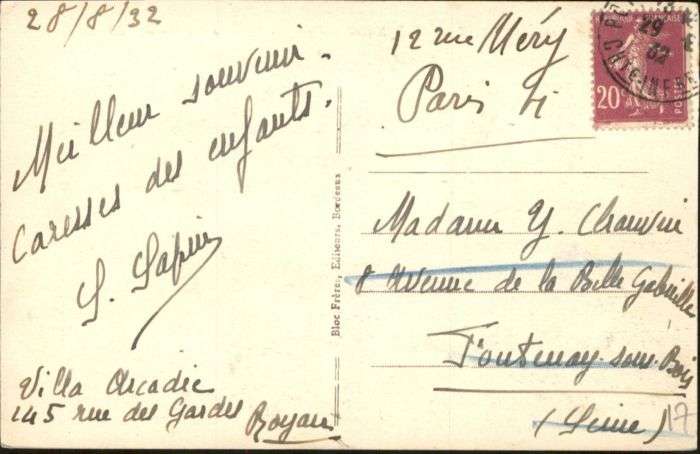 28/8/32
Meilleur souvenir.
Caresses des enfants.
S. Sapin
Villa Arcadie
145 rue des Gardes Royan
Bloc Frères, Editeurs, Bordeaux
12 rue Méry
Paris
20
29
32
POSTES
Madame Y. Chauvin
8 Avenue de la Belle Gabrielle
Fontenay-sous-Bois
(Seine)
17